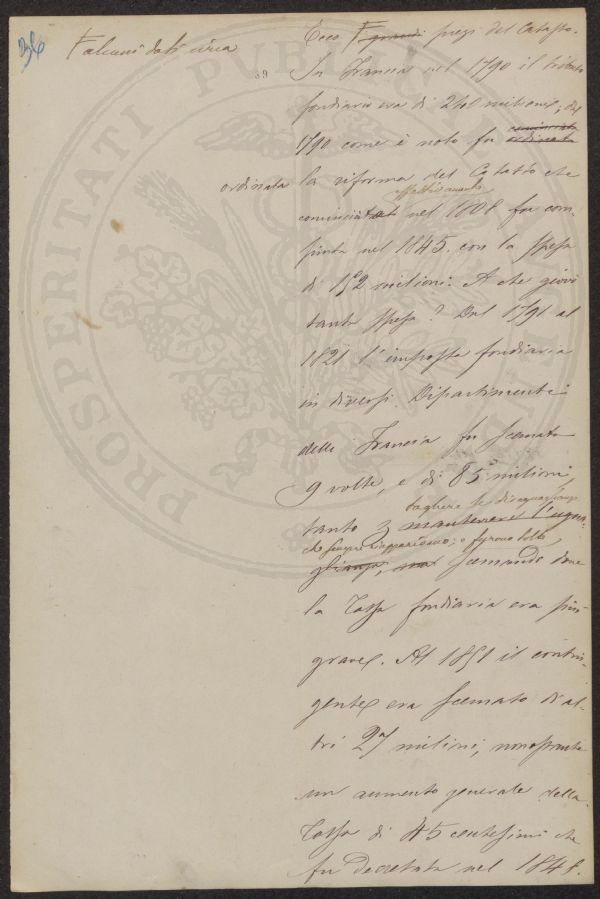 36
Falcuni dati circa
39
Ecco F grandi pregi del Catasto.
In Francia nel 1790 il tributo
fondiario era di 240 milioni; del
cominciata
1790 come è noto fu ordinata
ordinata la riforma del Catasto che
effettivamente
cominciata nel 1808 fu com-
piuta nel 1845. con la spesa
di 152 milioni. A che giovò
tanta spesa? Dal 1791 al
1821 l'imposta fondiaria
in diversi Dipartimenti
della Francia fu scemata
9 volte, e di 85 milioni
togliere le disuguaglianze
tanto mantenere l'ugua-
che sempre riapparivano; e furono tolte
glianza, scemando dove
la Tassa fondiaria era più
grave. Al 1851 il contin-
gente era scemato di al-
tri 27 milioni, nonostante
un aumento generale della
Tassa di 45 centesimi che
fu decretata nel 1848.
PROSPERITATI PUBLICAE